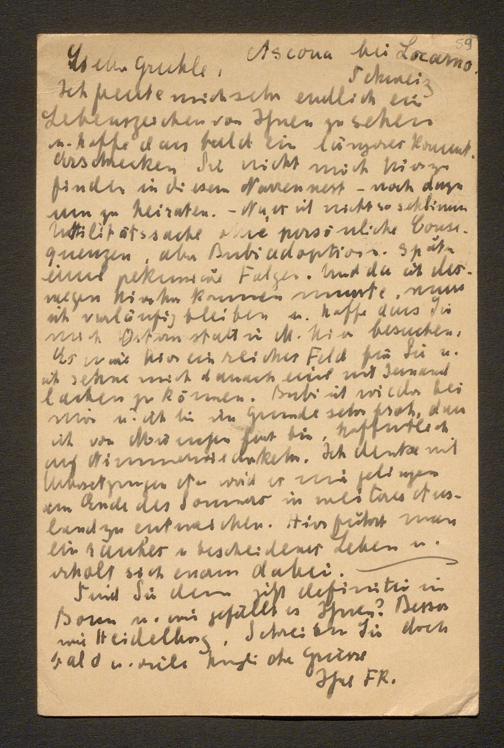 59
Ascona bei Locarno.
Schweiz
Ich freute mich sehr endlich ein
Lebenszeichen von Ihnen zu sehen
u. hoffe dass bald ein längeres kommt.
Erschrecken Sie nicht mich hier zu
finden in diesem Narrennest – noch dazu
um zu heiraten. – Na, es ist nicht so schlimm
Utilitätssache ohne persönliche Conse-
quenzen, aber Bubiadoption. Später
pekuniäre Folgen. Und da ich des-
wegen hierher kommen musste, nun
ich vorläufig bleiben u. hoffe dass Sie
mich Ostern statt in M. hier besuchen.
Es wäre hier ein reiches Feld für Sie u.
ich sehne mich danach mit Jemand
lachen zu können. Bubi ist wieder bei
mir u. ich bin im Grunde sehr froh, dass
ich von München fort bin, hoffentlich
auf Nimmerwiederkehr. Ich denke mit
Übersetzungen etc wird es mir gelingen
am Ende des Sommers in weiteres Aus-
land zu entweichen. Hier führt man
ein und bescheidenes Leben u.
erholt sich enorm dabei.
Sind Sie denn jetzt definitiv in
Bonn u. wie gefällt es Ihnen? Besser
wie Heidelberg. Schreiben Sie doch
bald u. viele herzliche Grüsse
Ihre FR.